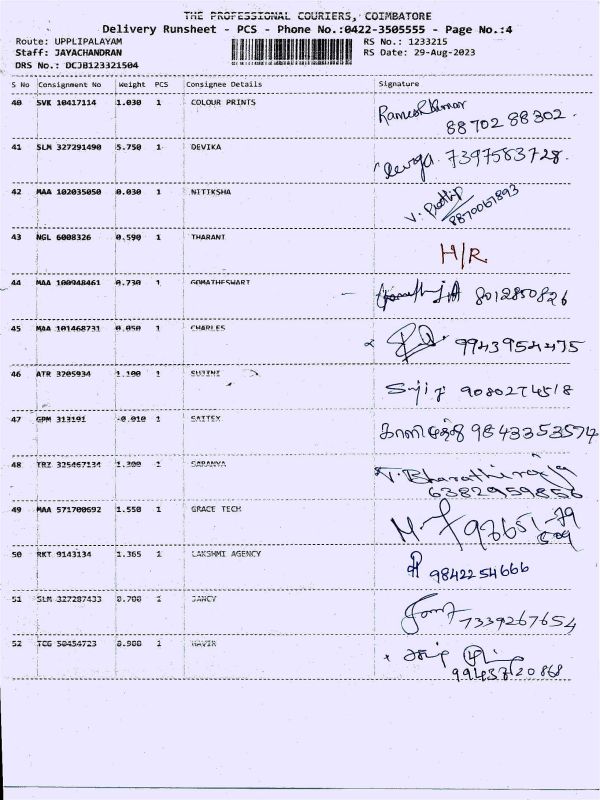 THE PROFESSIONAL COURIERS, COIMBATORE
Delivery Runsheet - PCS - Phone No.:0422-3505555 - Page No.:4
Route: UPPLIPALAYAM RS No.: 1233215
Staff: JAYACHANDRAN RS Date: 29-Aug-2023
DRS No.: DCJB123321504
S No Consignment No Weight PCS Consignee Details Signature
40 SVK 10417114 1.030 1 COLOUR PRINTS Rameshkumar
88702 88302.
41 SLM 327291490 5.750 1 DEVIKA 7397583728.
42 MAA 102035050 0.030 1 NITIKSHA V. Prathip
8870067893
43 NGL 6008326 0.590 1 THARANI H/R
44 MAA 100948461 0.730 1 GOMATHESWARI 8012850826
45 MAA 101468731 0.050 1 CHARLES 9943954475
46 ATR 3205934 1.100 1 SUJINI Suji 9080274518
47 GPM 313191 -0.010 1 SAITEX 9843353574
48 TRZ 325467134 1.300 1 SARANYA T. Bharathiraja
6382959856
49 MAA 571700692 1.550 1 GRACE TECH
50 RKT 9143134 1.365 1 LAKSHMI AGENCY 9842254666
51 SLM 327287433 0.700 1 JANCY 7339267654
52 TCG 50454723 0.900 1 HAVIR
9943720868